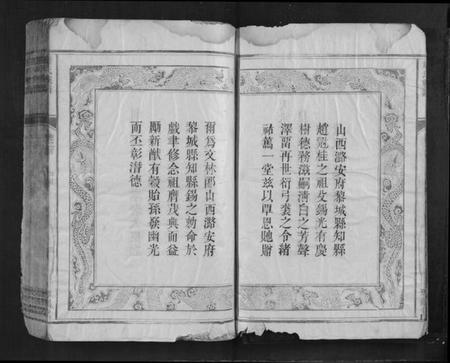 山西潞安府黎城縣知縣
趙冠桂之祖父錫光有慶
樹德務滋嗣清白之芳聲
澤畱再世衍弓裘之令緒
祚萬一堂兹以覃恩貤贈
爾爲文林郎山西潞安府
黎城縣知縣錫之勅命於
戲聿修念祖膺茂典而益
勵新猷有穀貽孫發幽光
而丕彰潛德